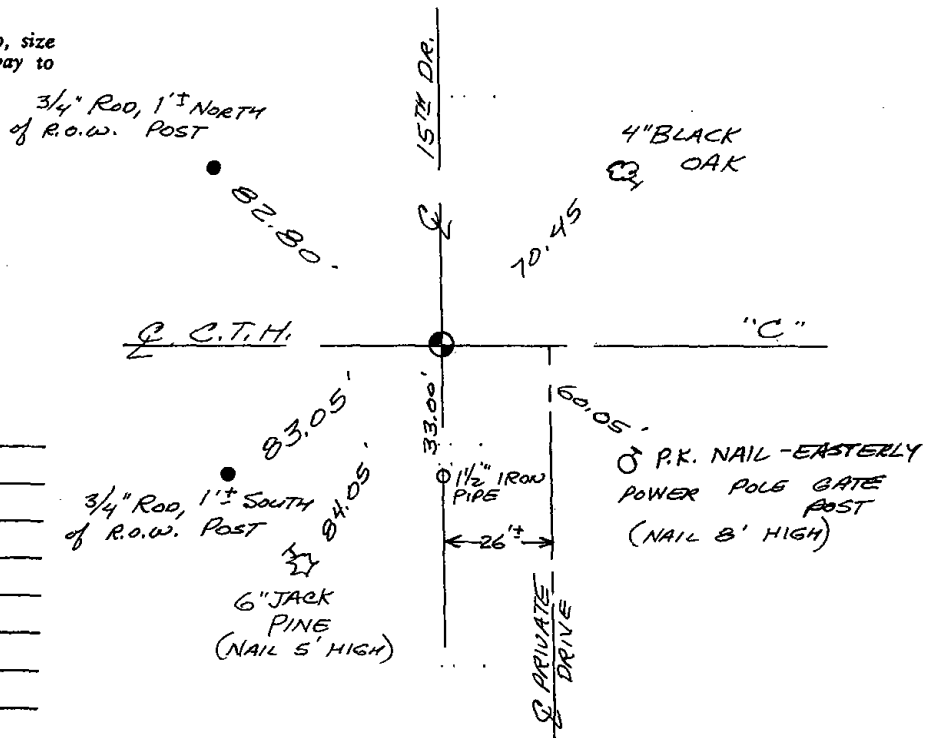 , size
way to
15TH DR.
3/4" ROD, 1'± NORTH
of R.O.W. POST
4" BLACK
OAK
82.80'
70.45
℄
℄ C.T.H.
"C"
83.05'
33.00'
60.05'
3/4" ROD, 1'± SOUTH
of R.O.W. POST
84.05'
1 1/2" IRON
PIPE
P.K. NAIL - EASTERLY
POWER POLE GATE
POST
(NAIL 8' HIGH)
26'±
6" JACK
PINE
(NAIL 5' HIGH)
℄ PRIVATE
DRIVE